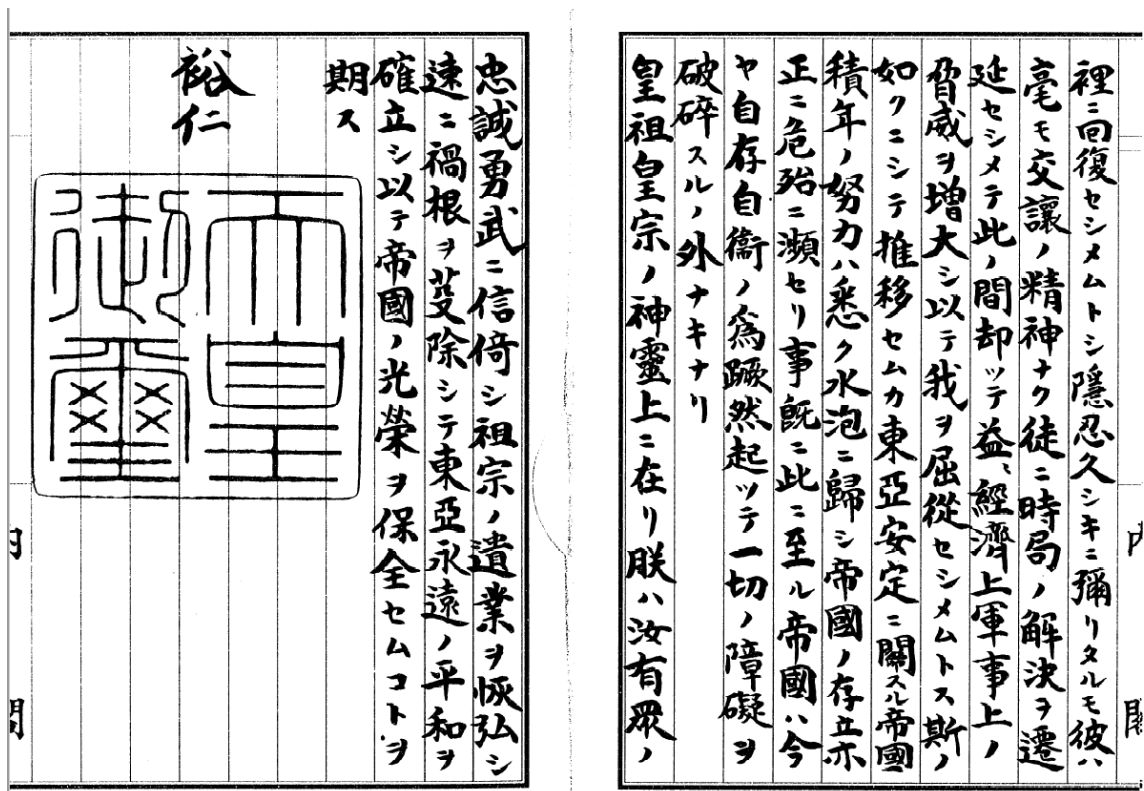 裡ニ囘復セシメムトシ隱忍久シキニ彌リタルモ彼ハ
毫モ交讓ノ精神ナク徒ニ時局ノ解決ヲ遷
延セシメテ此ノ間却ツテ益〻經濟上軍事上ノ
脅威ヲ増大シ以テ我ヲ屈從セシメムトス斯ノ
如クニシテ推移セムカ東亞安定ニ關スル帝國
積年ノ努力ハ悉ク水泡ニ歸シ帝國ノ存立亦
正ニ危殆ニ瀕セリ事既ニ此ニ至ル帝國ハ今
ヤ自存自衞ノ爲蹶然起ツテ一切ノ障礙ヲ
破碎スルノ外ナキナリ
皇祖皇宗ノ神靈上ニ在リ朕ハ汝有眾ノ
忠誠勇武ニ信倚シ祖宗ノ遺業ヲ恢弘シ
速ニ禍根ヲ芟除シテ東亞永遠ノ平和ヲ
確立シ以テ帝國ノ光榮ヲ保全セムコトヲ
期ス
裕仁
天皇
御璽